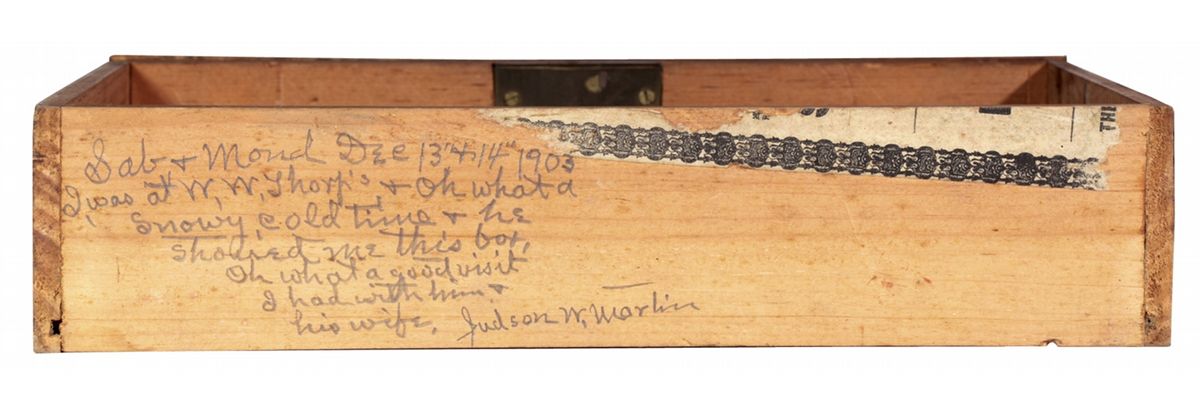 Sab + Mond Dec 13" + 14" 1903
I was at W. W. Thorp's, + Oh what a
snowy, cold time + he
showed me this box,
Oh what a good visit
I had with him +
his wife, Judson W. Martin
THE